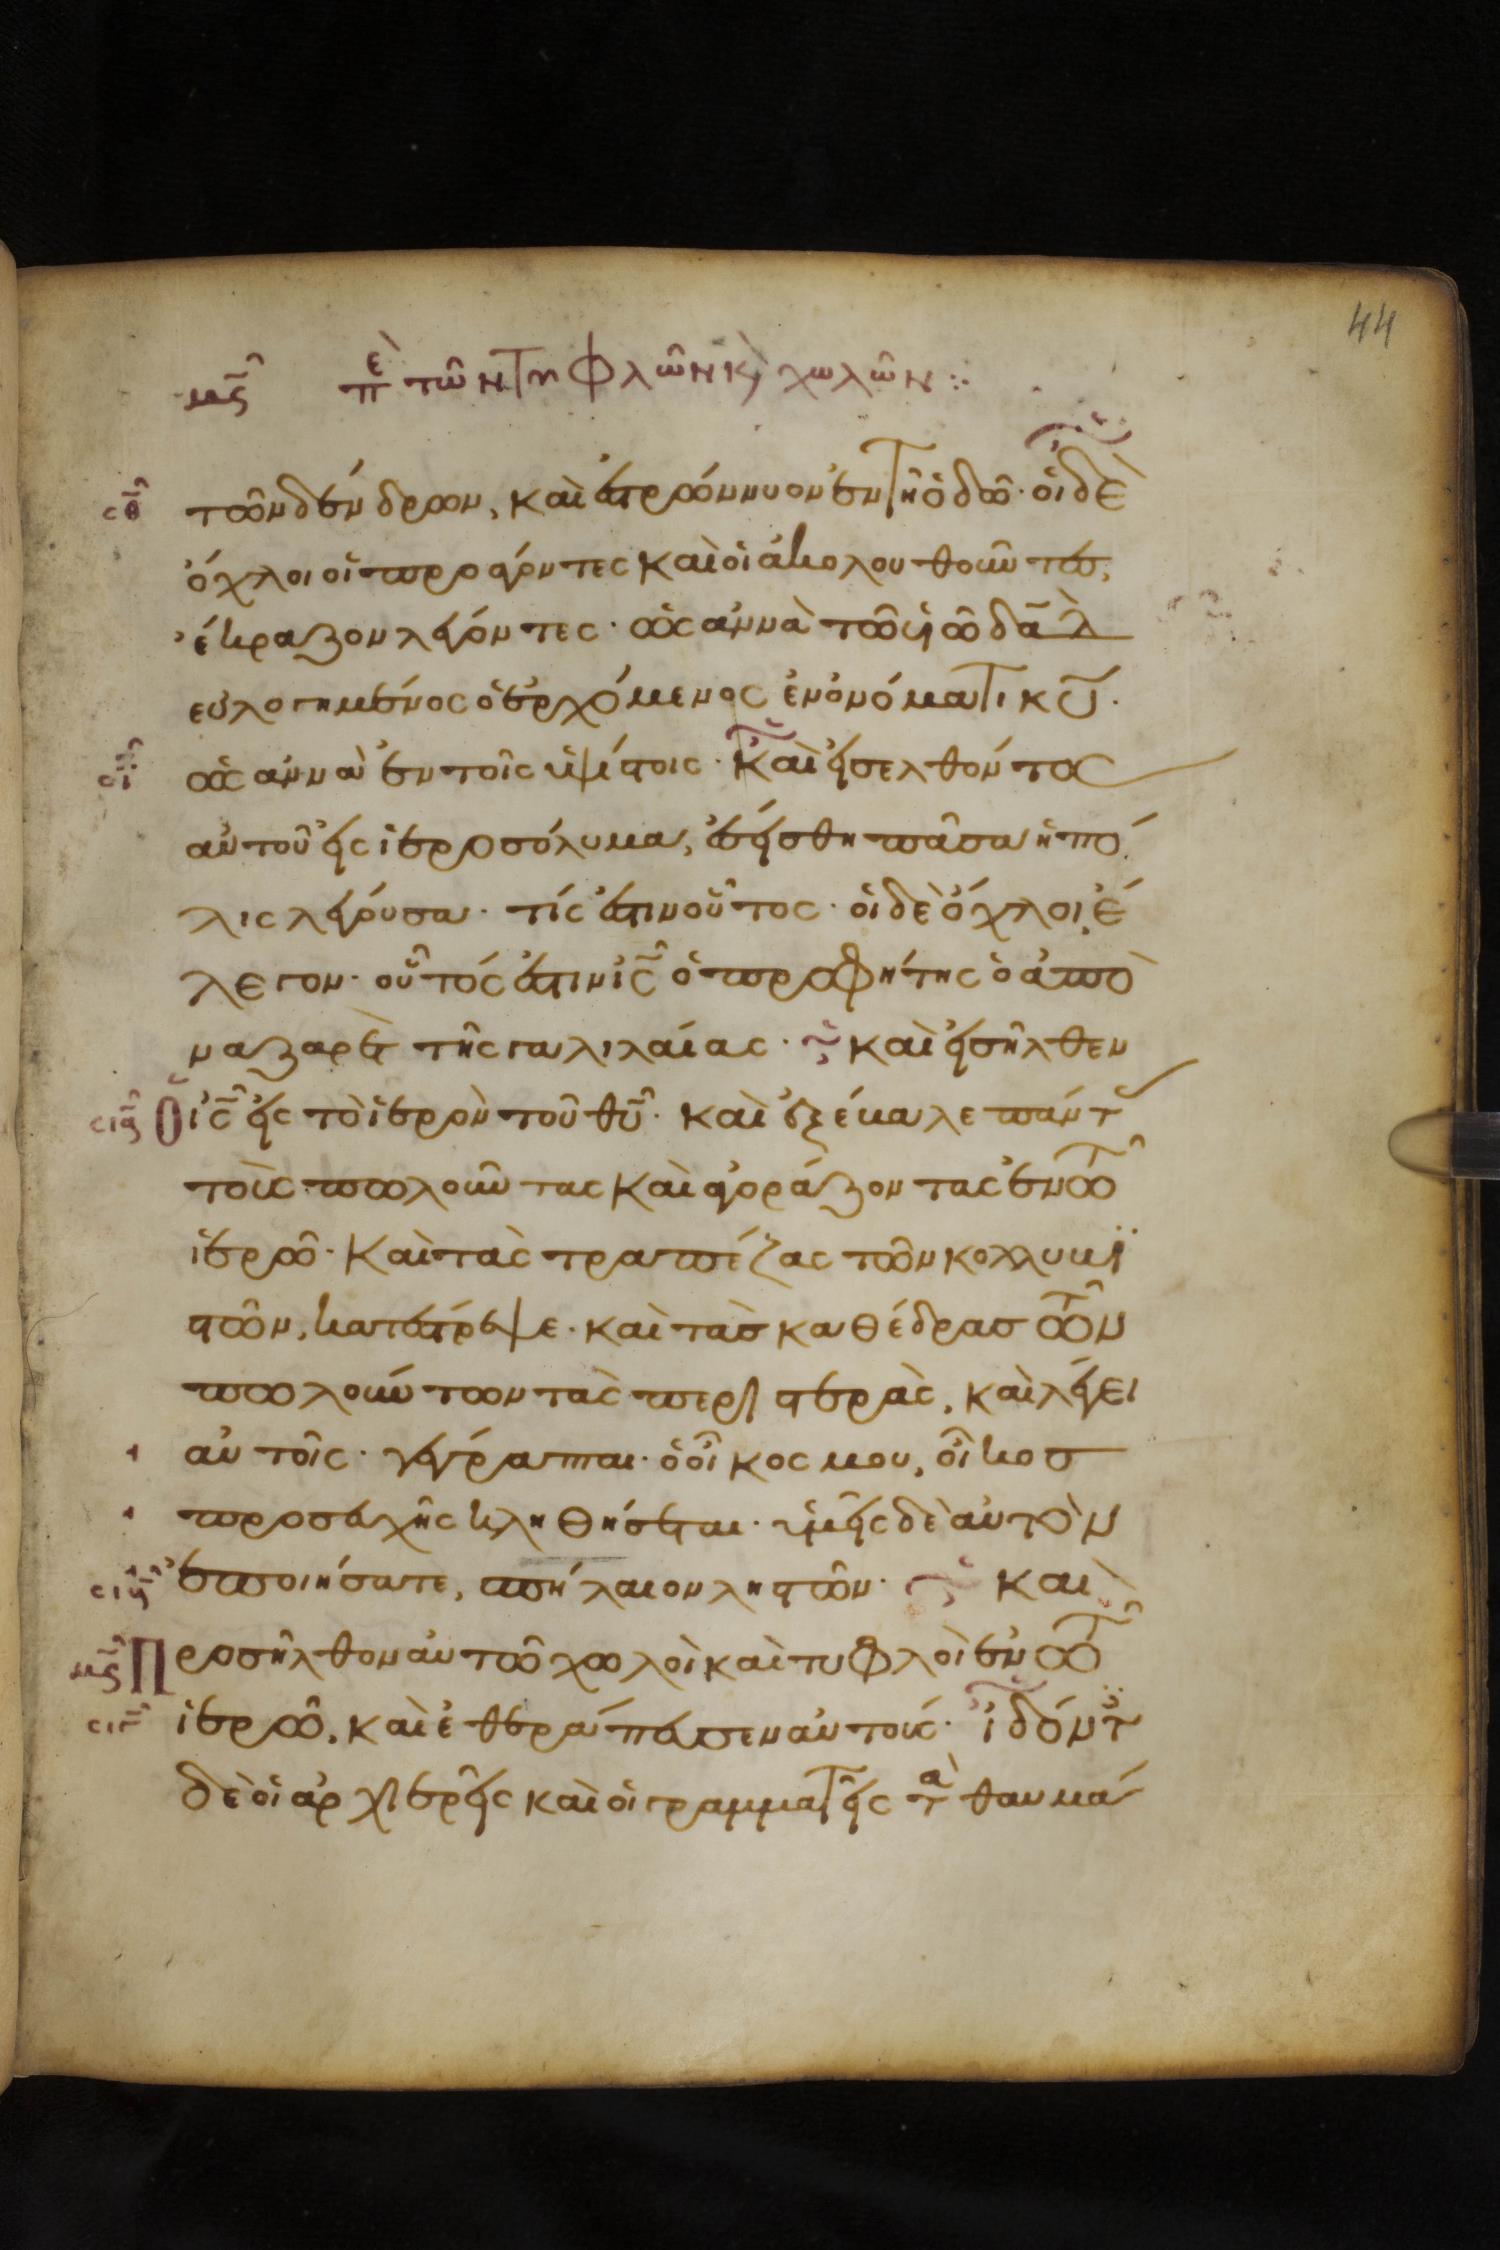 44
μϛ πε τῶν τυφλῶν κ χωλῶν
σθ τῶν δένδρων, καὶ ἐστρώννυον ἐν τῆ ὁδῶ· οἱ δὲ
ὄχλοι οἱ προάγοντες καὶ οἱ ἀκολουθοῦντες,
ἔκραζον λέγοντες· ὡσαννὰ τῶ υἱῶ δαδ
εὐλογημένος ὁ ἐρχόμενος ἐν ὀνόματι κυ·
σι ὡσαννὰ ἐν τοῖς ὑψίστοις· Καὶ εἰσελθόντος
αὐτοῦ εἰς ἱεροσόλυμα, ἐσείσθη πᾶσα ἡ πό
λις λέγουσα· τίς ἐστιν οὗτος· οἱ δὲ ὄχλοι, ἔ
λεγον· οὗτός ἐστιν ις ὁ προφήτης ὁ ἀπὸ
ναζαρὲτ τῆς γαλιλαίας· καὶ εἰσῆλθεν
σια ὁ ις εἰς τὸ ἱερὸν τοῦ θυ· καὶ ἐξέβαλε πάντ
τοὺς πωλοῦντας καὶ ἀγοράζοντας ἐν τῶ
ἱερῶ· καὶ τὰς τραπέζας τῶν κολλυβι
στῶν, κατέστρεψε· καὶ τὰς καθέδρας τῶν
πωλούντων τὰς περιστεράς, καὶ λέγει
αὐτοῖς· γέγραπται· ὁ οἶκος μου, οἶκος
προσευχῆς κληθήσεται· ὑμεῖς δὲ αὐτὸν
σιβ ἐποιήσατε, σπήλαιον ληστῶν· καὶ
μϛ Προσῆλθον αὐτῶ χωλοὶ καὶ τυφλοὶ ἐν τῶ
σιγ ἱερῶ, καὶ ἐθεράπευσεν αὐτούς· ἰδόντ
δὲ οἱ ἀρχιερεῖς καὶ οἱ γραμματεῖς τὰ θαυμά